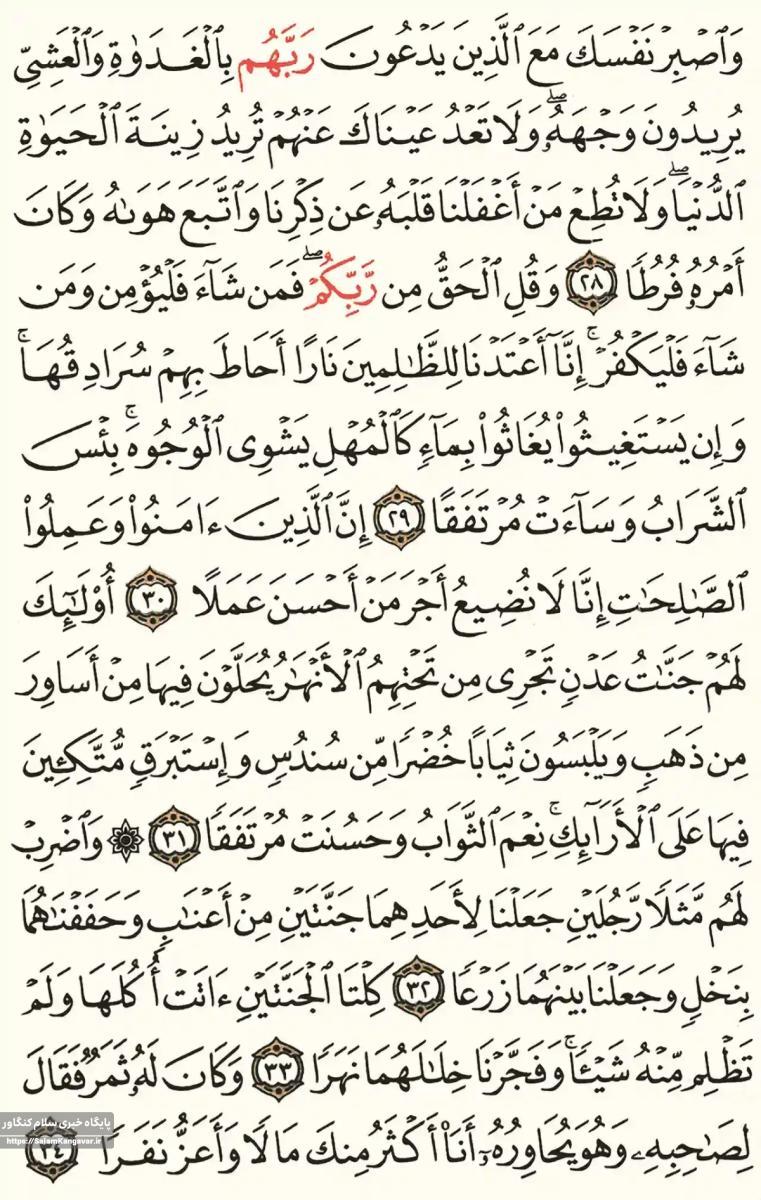 وَٱصۡبِرۡ نَفۡسَكَ مَعَ ٱلَّذِينَ يَدۡعُونَ رَبَّهُم بِٱلۡغَدَوٰةِ وَٱلۡعَشِيِّ
يُرِيدُونَ وَجۡهَهُۥۖ وَلَا تَعۡدُ عَيۡنَاكَ عَنۡهُمۡ تُرِيدُ زِينَةَ ٱلۡحَيَوٰةِ
ٱلدُّنۡيَاۖ وَلَا تُطِعۡ مَنۡ أَغۡفَلۡنَا قَلۡبَهُۥ عَن ذِكۡرِنَا وَٱتَّبَعَ هَوَىٰهُ وَكَانَ
أَمۡرُهُۥ فُرُطٗا ٢٨ وَقُلِ ٱلۡحَقُّ مِن رَّبِّكُمۡۖ فَمَن شَآءَ فَلۡيُؤۡمِن وَمَن
شَآءَ فَلۡيَكۡفُرۡۚ إِنَّآ أَعۡتَدۡنَا لِلظَّٰلِمِينَ نَارًا أَحَاطَ بِهِمۡ سُرَادِقُهَاۚ
وَإِن يَسۡتَغِيثُواْ يُغَاثُواْ بِمَآءٖ كَٱلۡمُهۡلِ يَشۡوِي ٱلۡوُجُوهَۚ بِئۡسَ
ٱلشَّرَابُ وَسَآءَتۡ مُرۡتَفَقًا ٢٩ إِنَّ ٱلَّذِينَ ءَامَنُواْ وَعَمِلُواْ
ٱلصَّٰلِحَٰتِ إِنَّا لَا نُضِيعُ أَجۡرَ مَنۡ أَحۡسَنَ عَمَلًا ٣٠ أُوْلَٰٓئِكَ
لَهُمۡ جَنَّٰتُ عَدۡنٖ تَجۡرِي مِن تَحۡتِهِمُ ٱلۡأَنۡهَٰرُ يُحَلَّوۡنَ فِيهَا مِنۡ أَسَاوِرَ
مِن ذَهَبٖ وَيَلۡبَسُونَ ثِيَابًا خُضۡرٗا مِّن سُندُسٖ وَإِسۡتَبۡرَقٖ مُّتَّكِـِٔينَ
فِيهَا عَلَى ٱلۡأَرَآئِكِۚ نِعۡمَ ٱلثَّوَابُ وَحَسُنَتۡ مُرۡتَفَقٗا ٣١ ۞ وَٱضۡرِبۡ
لَهُم مَّثَلٗا رَّجُلَيۡنِ جَعَلۡنَا لِأَحَدِهِمَا جَنَّتَيۡنِ مِنۡ أَعۡنَٰبٖ وَحَفَفۡنَٰهُمَا
بِنَخۡلٖ وَجَعَلۡنَا بَيۡنَهُمَا زَرۡعٗا ٣٢ كِلۡتَا ٱلۡجَنَّتَيۡنِ ءَاتَتۡ أُكُلَهَا وَلَمۡ
تَظۡلِم مِّنۡهُ شَيۡـٔٗاۚ وَفَجَّرۡنَا خِلَٰلَهُمَا نَهَرٗا ٣٣ وَكَانَ لَهُۥ ثَمَرٞ فَقَالَ
لِصَٰحِبِهِۦ وَهُوَ يُحَاوِرُهُۥٓ أَنَا۠ أَكۡثَرُ مِنكَ مَالٗا وَأَعَزُّ نَفَرٗا ٣٤
پایگاه خبری سلام کنگاور
https://SalamKangavar.ir